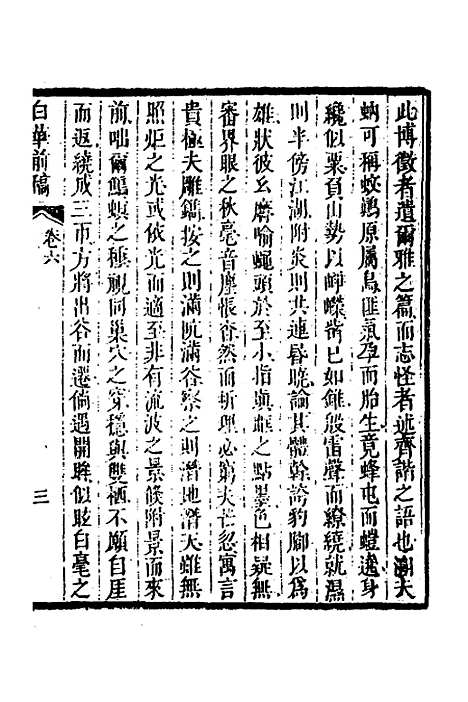 此博徵者遺爾雅之篇而志怪者述齊諧之語也溯夫
蚋可稱蚊鷏原屬鳥匪氣孕而胎生竟蜂屯而螘逸身
纔似粟負山勢以崢嶸觜已如錐殷雷聲而繚繞就濕
則半傍江湖附炎則共連昬曉論其體幹誇豹腳以爲
雄狀彼幺麽喻蠅頭於至小指顛眶之點墨色相疑無
審界眼之秋毫音摩悵杳然而斩理必窮夫芒忽寓言
貴極夫雕鐫按之則滿阬滿谷察之則潛地潛天雖無
照炬之光或依光而適至非有流波之景倏附景而來
前咄爾䳍螟之種覜同巢穴之穿穩與雙栖不願自涯
而返繞成三帀方將出谷而遷倘遇開眸似眩白毫之
白華前稿
卷六
三